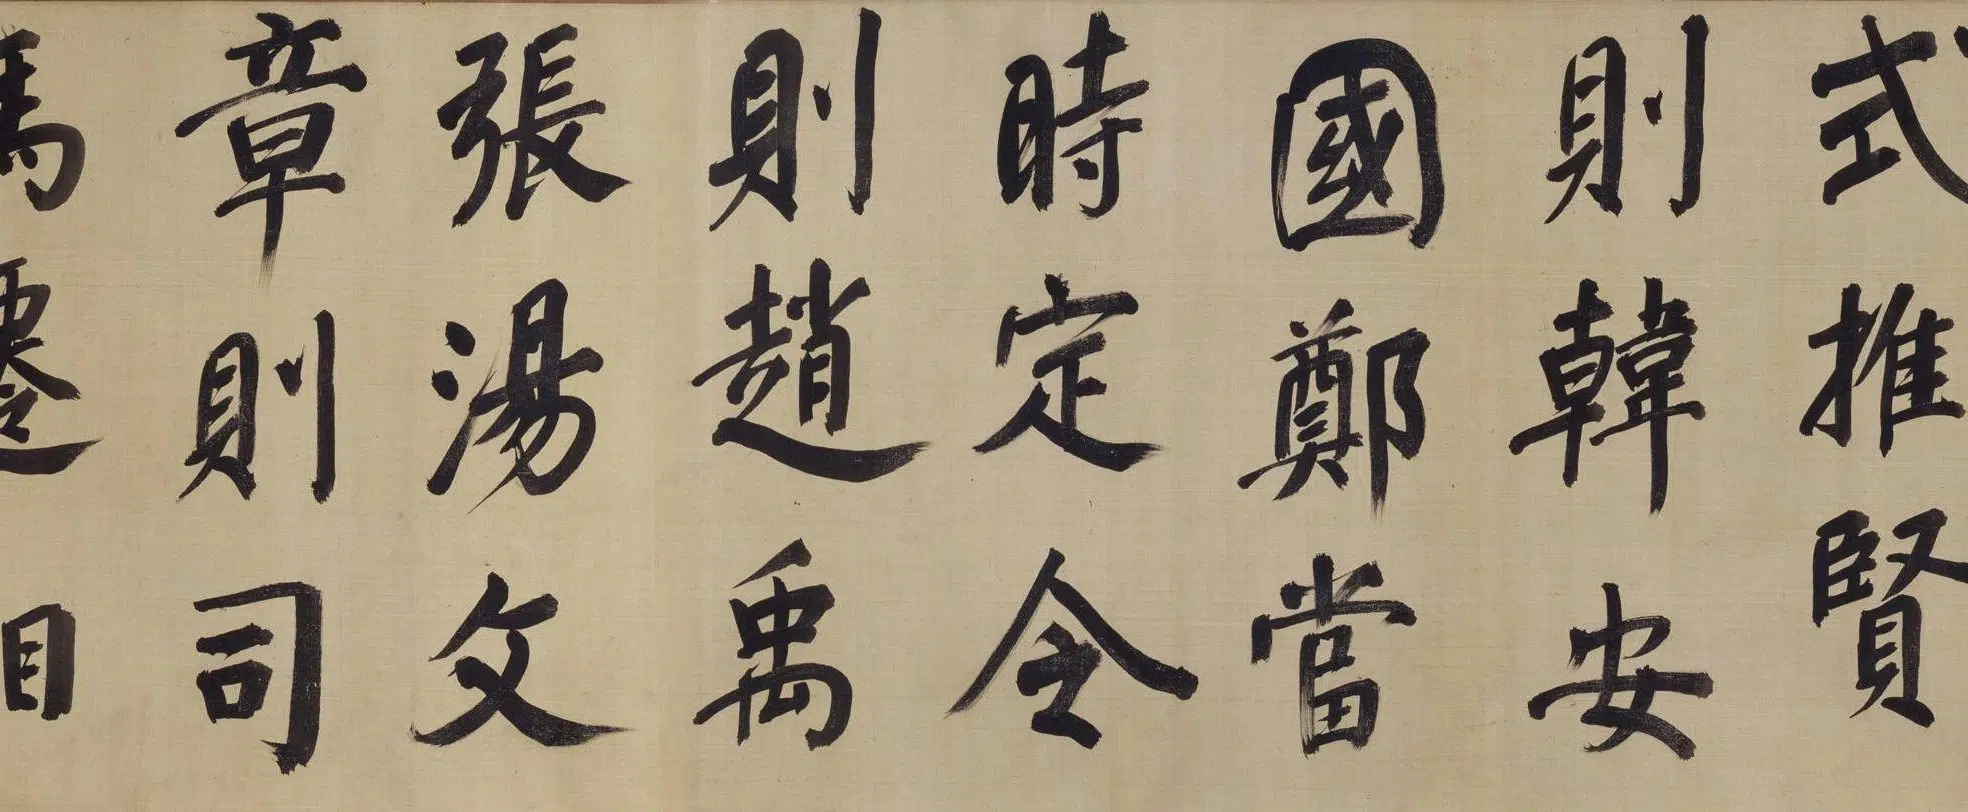 式推賢
則韓安
國鄭當
時定令
則趙禹
張湯文
章則司
馬遷相